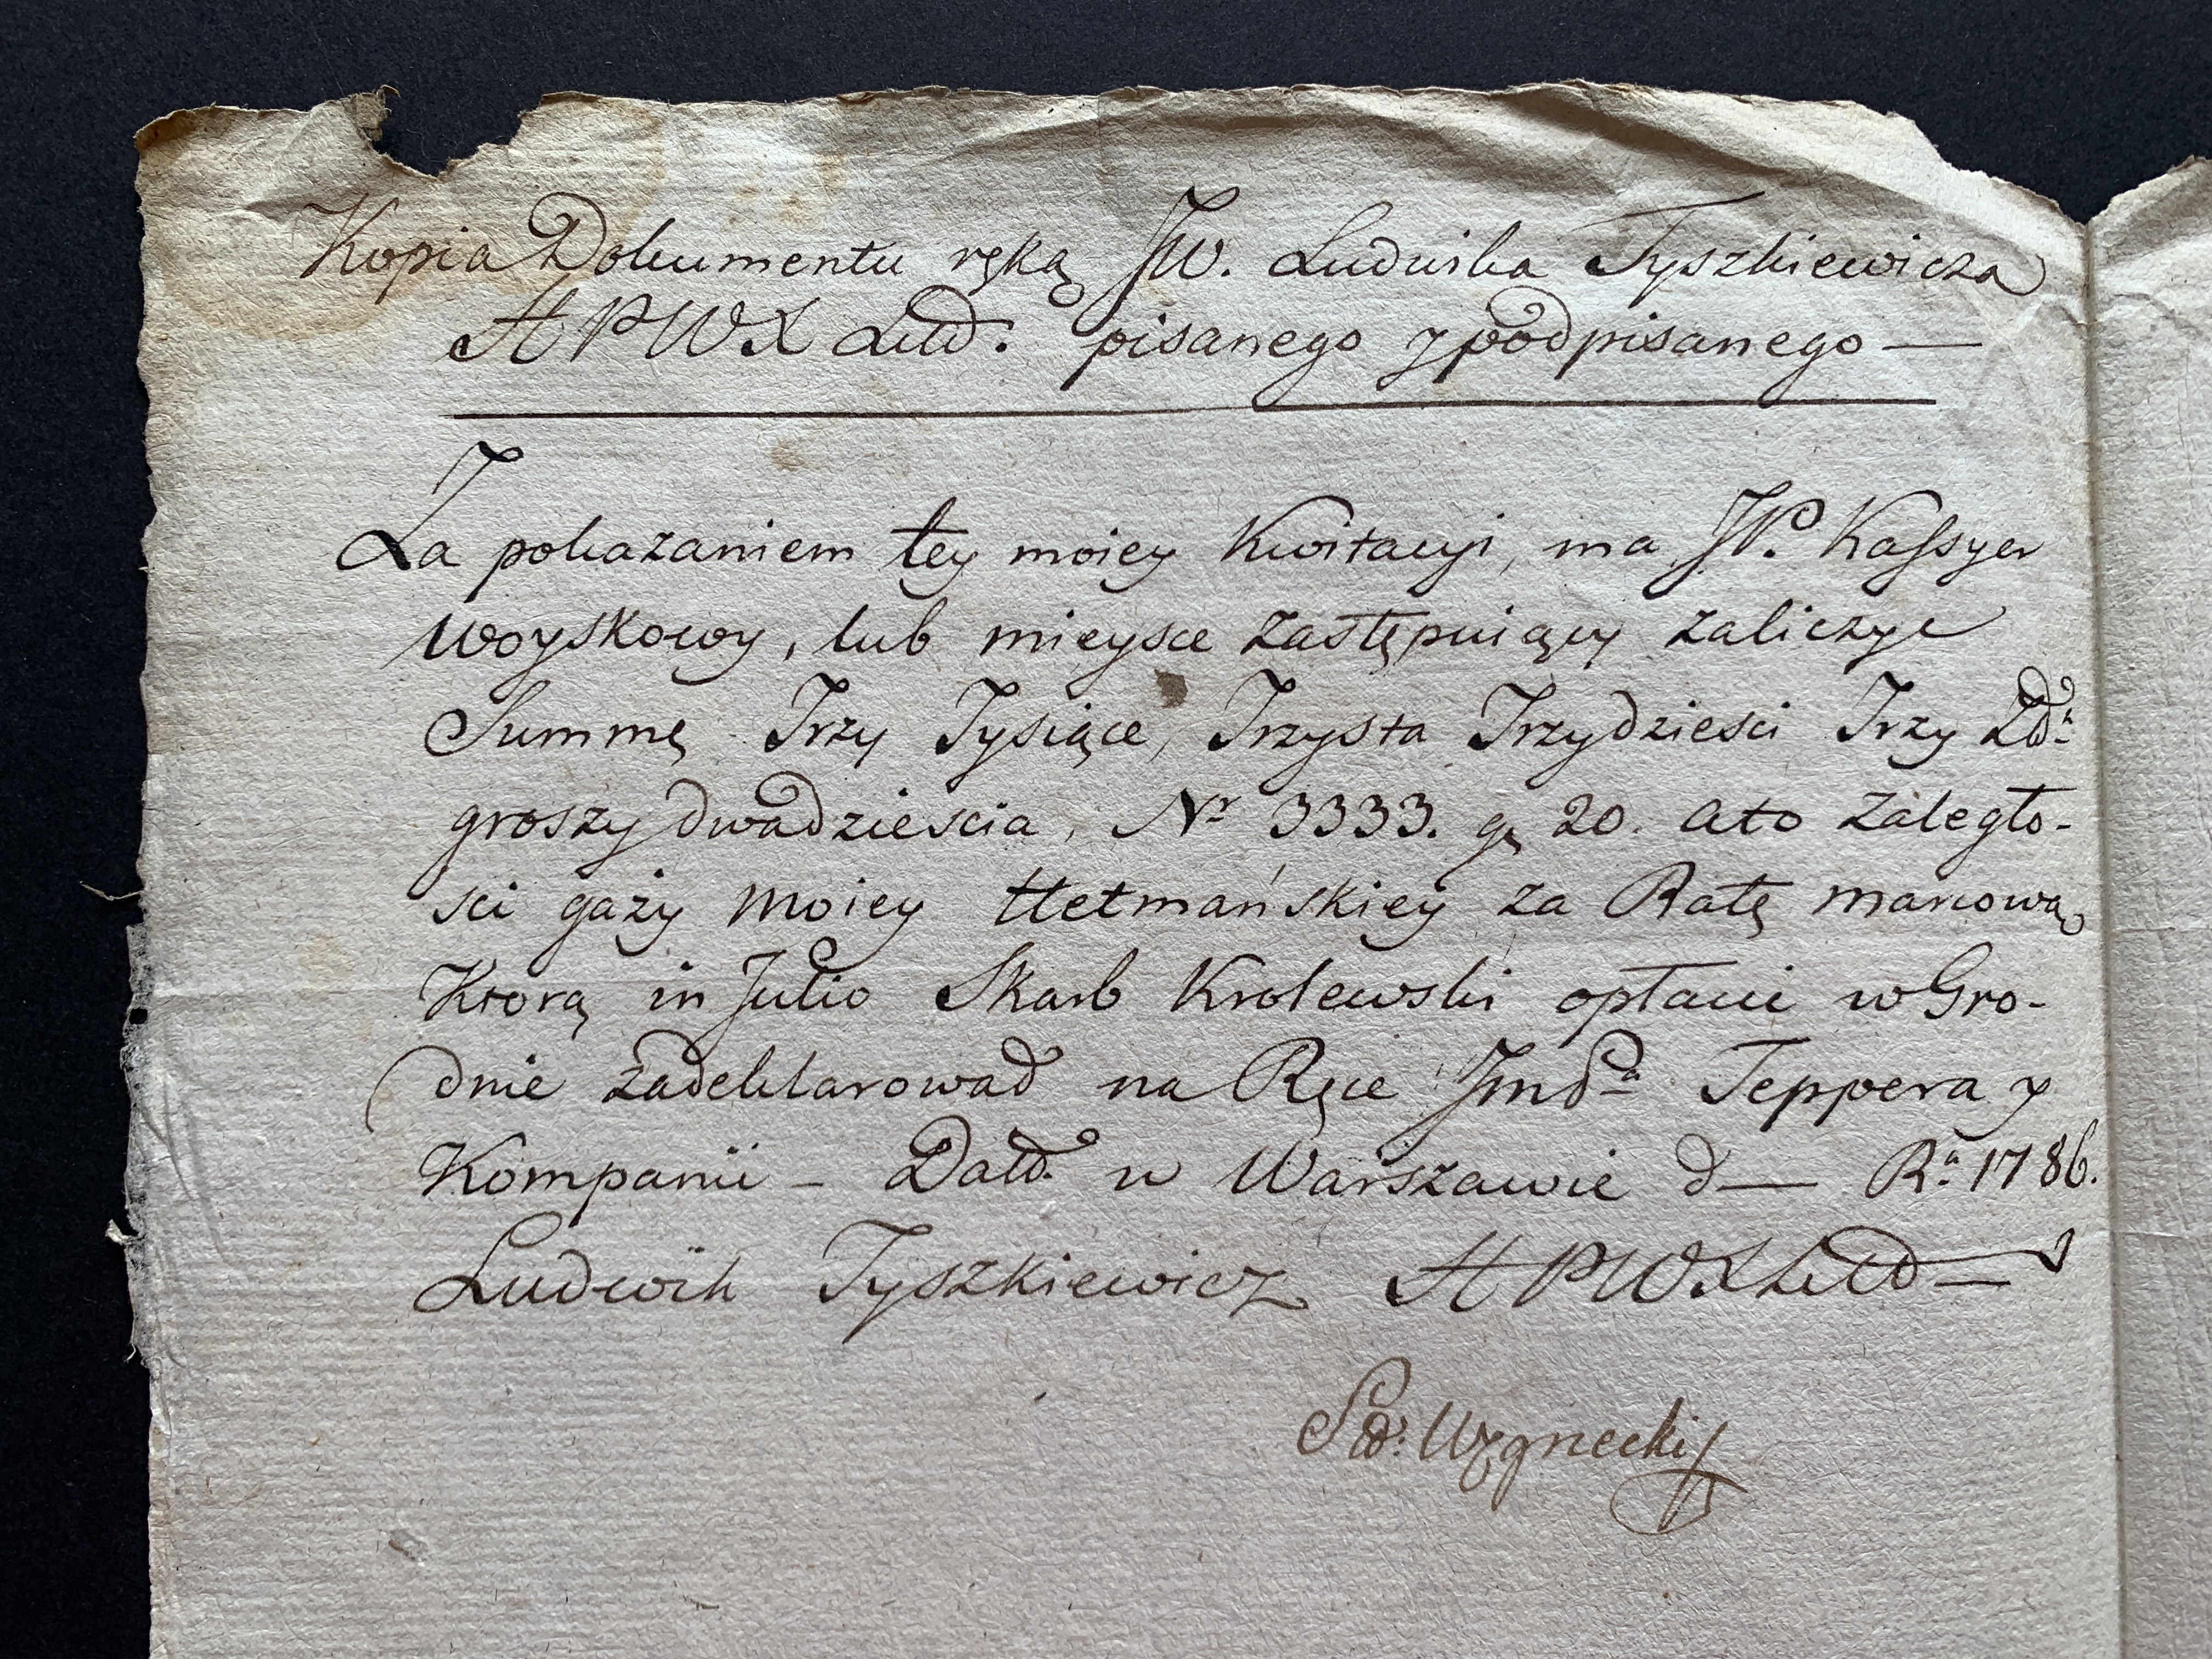 Kopia Dokumentu ręką JW. Ludwika Tyszkiewicza
HPWX Litt. pisanego y podpisanego —
Za pokazaniem tey moiey Kwitacyi, ma JP. Kassyer
Woyskowy, lub mieysce zastępuiący zaliczyc
Summę Trzy Tysiące, Trzysta Trzydziesci Trzy Złł:
groszy dwadziescia, Nr 3333. g 20. ato zaległo-
sci gaży moiey Hetmańskiey za Ratę marcową
Ktorą in Julio Skarb Krolewski opłacic w Gro-
dnie zadeklarował na Ręce Teppera y
Kompanii – Datt. w Warszawie d — Ra: 1786.
Ludwik Tyszkiewicz HPWXLitt —
Węgnecki